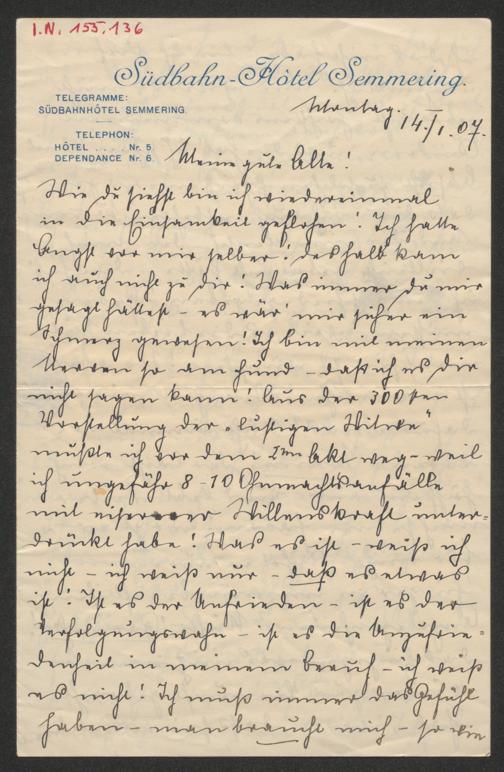 I.N. 155.136
Südbahn-Hôtel Semmering.
TELEGRAMME:
SÜDBAHNHÔTEL SEMMERING.
TELEPHON:
HÔTEL .... Nr. 5.
DEPENDANCE Nr. 6.
Montag. 14./I. 07.
Meine gute Alte!
Wie du siehst bin ich wiedereinmal
in die Einsamkeit geflohen! Ich hatte
Angst vor mir selber! deshalb kam
ich auch nicht zu dir! Was immer du mir
gesagt hättest – es wär' mir sicher ein
Schmerz gewesen! Ich bin mit meinen
Nerven so am Hund – daß ich es dir
nicht sagen kann! Aus der 300sten
Vorstellung der „lustigen Witwe"
mußte ich vor dem 2ten Akt weg – weil
ich ungefähr 8-10 Ohnmachtsanfälle
mit eiserner Willenskraft unter-
drückt habe! Was es ist – weiß ich
nicht – ich weiß nur – daß es etwas
ist! Ist es der Unfrieden – ist es der
Verfolgungswahn – ist es die Unzufrie-
denheit in meinem Beruf – ich weiß
es nicht! Ich muß immer das Gefühl
haben – man braucht mich – so wie